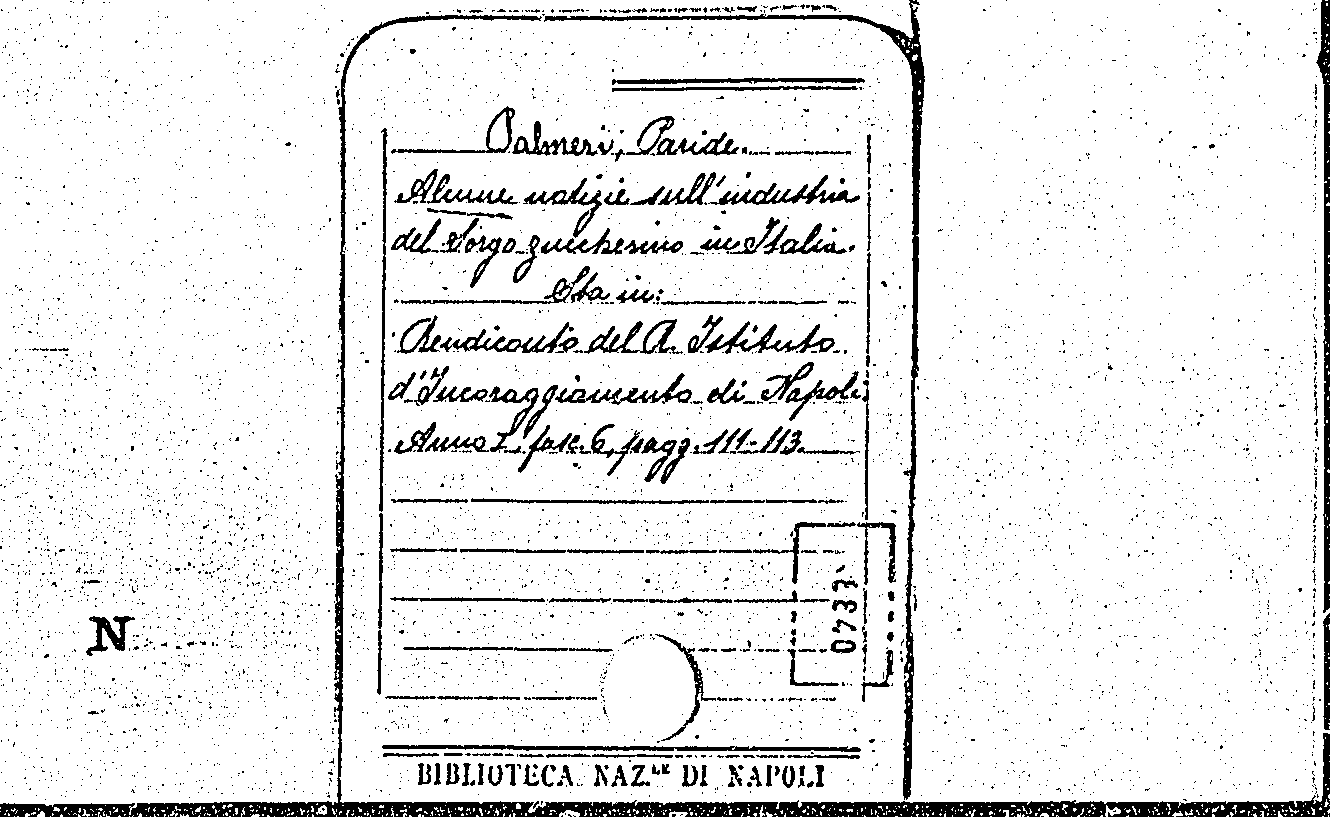 Palmeri, Paride.
Alcune notizie sull'industria
del Sorgo zuccherino in Italia.
Sta in:
Rendiconto del R. Istituto
d'Incoraggiamento di Napoli.
Anno I, fasc. 6, pagg. 111-113.
N
BIBLIOTECA NAZ.LE DI NAPOLI